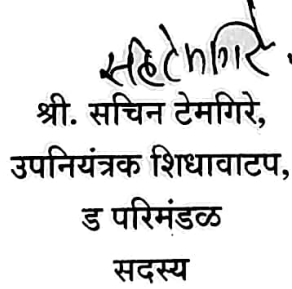 श्री. सचिन टेमगिरे,
उपनियंत्रक शिधावाटप,
ड परिमंडळ
सदस्य